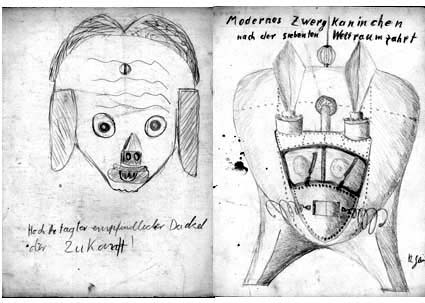 Hochbetagter empfindlicher Dackel
der Zukunft!
Modernes Zwerg Kaninchen
nach der siebenten Weltraumfahrt